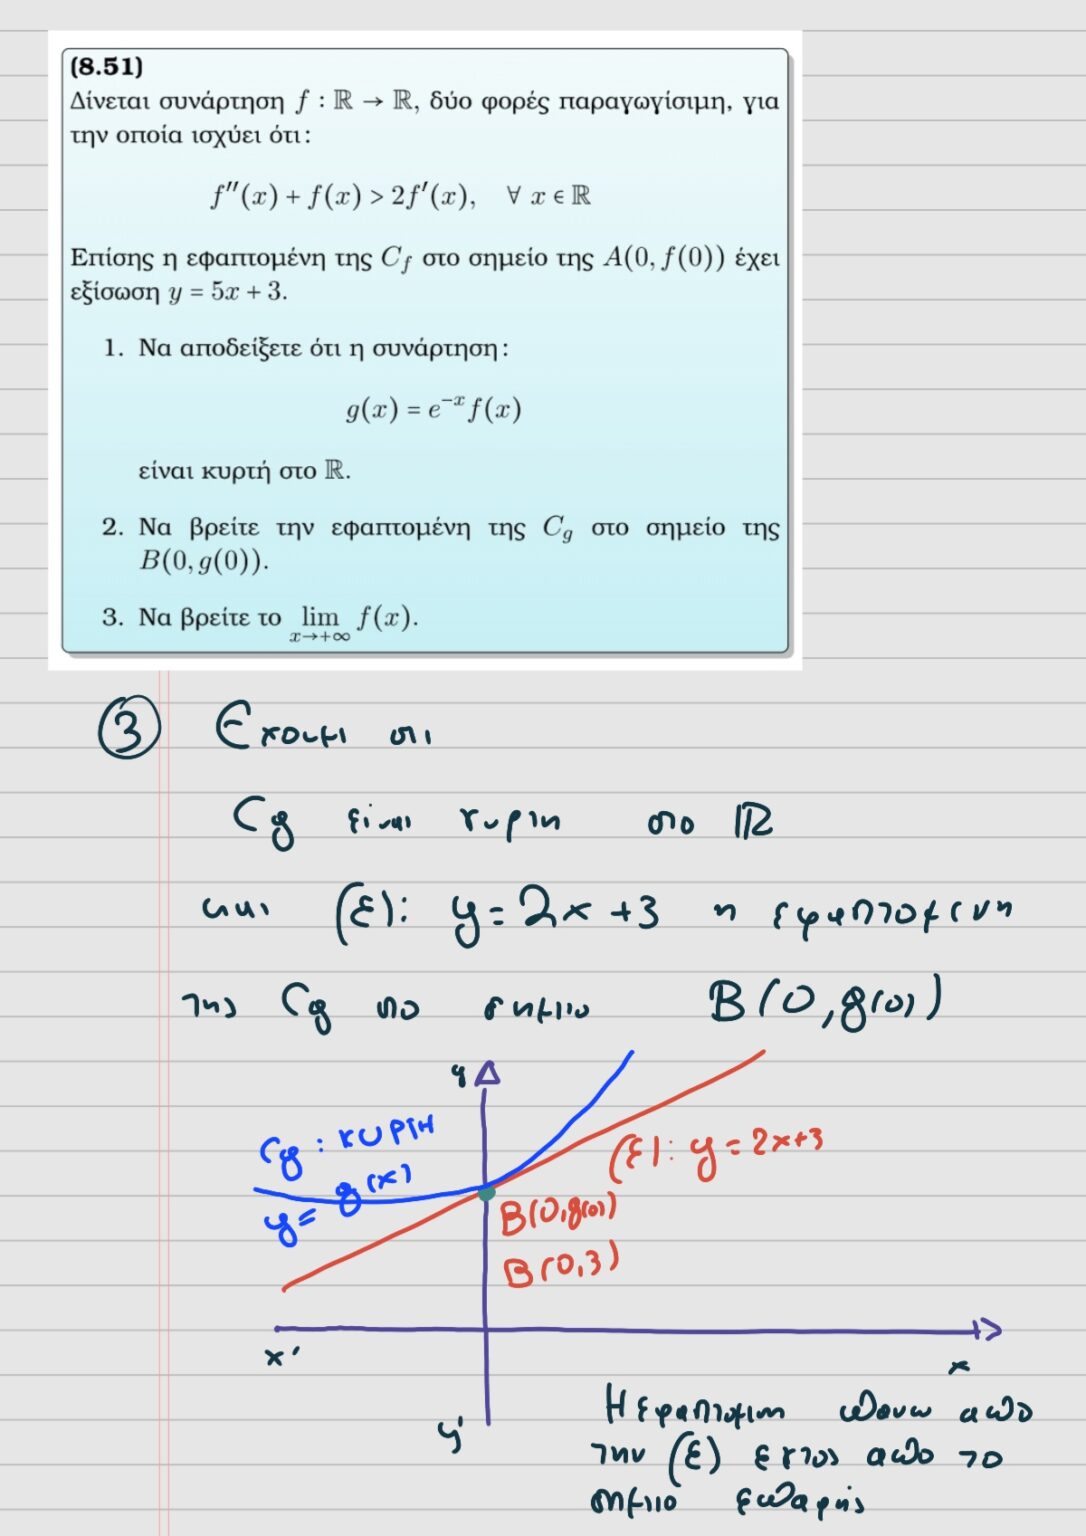 (8.51)
Δίνεται συνάρτηση f : ℝ → ℝ, δύο φορές παραγωγίσιμη, για
την οποία ισχύει ότι:
f''(x) + f(x) > 2f'(x), ∀ x ∈ ℝ
Επίσης η εφαπτομένη της C_f στο σημείο της A(0, f(0)) έχει
εξίσωση y = 5x + 3.
1. Να αποδείξετε ότι η συνάρτηση:
g(x) = e^{-x} f(x)
είναι κυρτή στο ℝ.
2. Να βρείτε την εφαπτομένη της C_g στο σημείο της
B(0, g(0)).
3. Να βρείτε το lim_{x→+∞} f(x).
③ Εχουμε οτι
Cg ειναι κυρτη στο ℝ
και (ε): y = 2x + 3 η εφαπτομενη
της Cg στο σημειο B(0, g(0))
y
Cg : κυρτη
y = g(x)
(ε): y = 2x+3
B(0, g(0))
B(0, 3)
x'
x
y'
Η εφαπτομενη πανω απο
την (ε) εκτος απο το
σημειο επαφης